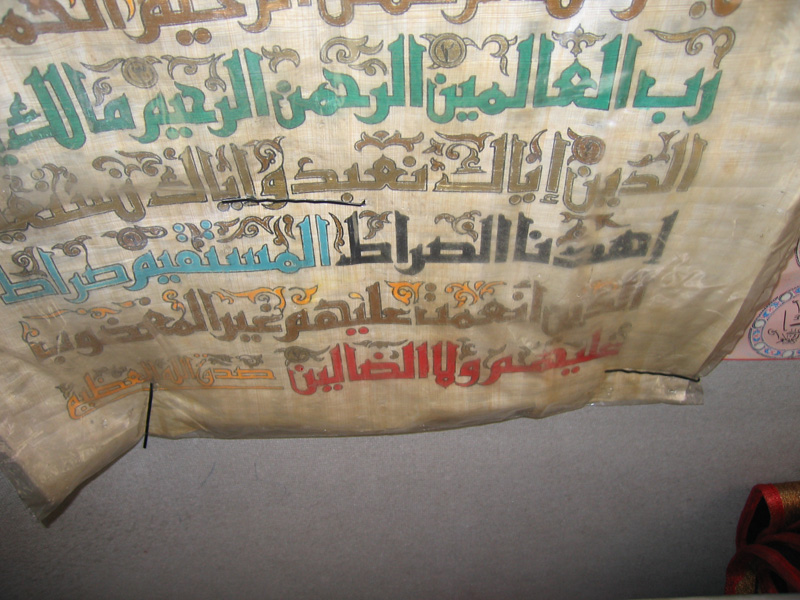 الرحيم الحمد
رب العالمين الرحمن الرحيم مالك
الدين إياك نعبد وإياك نستعين
إهدنا الصراط المستقيم صراط
الذين أنعمت عليهم غير المغضوب
عليهم ولا الضالين صدق الله العظيم